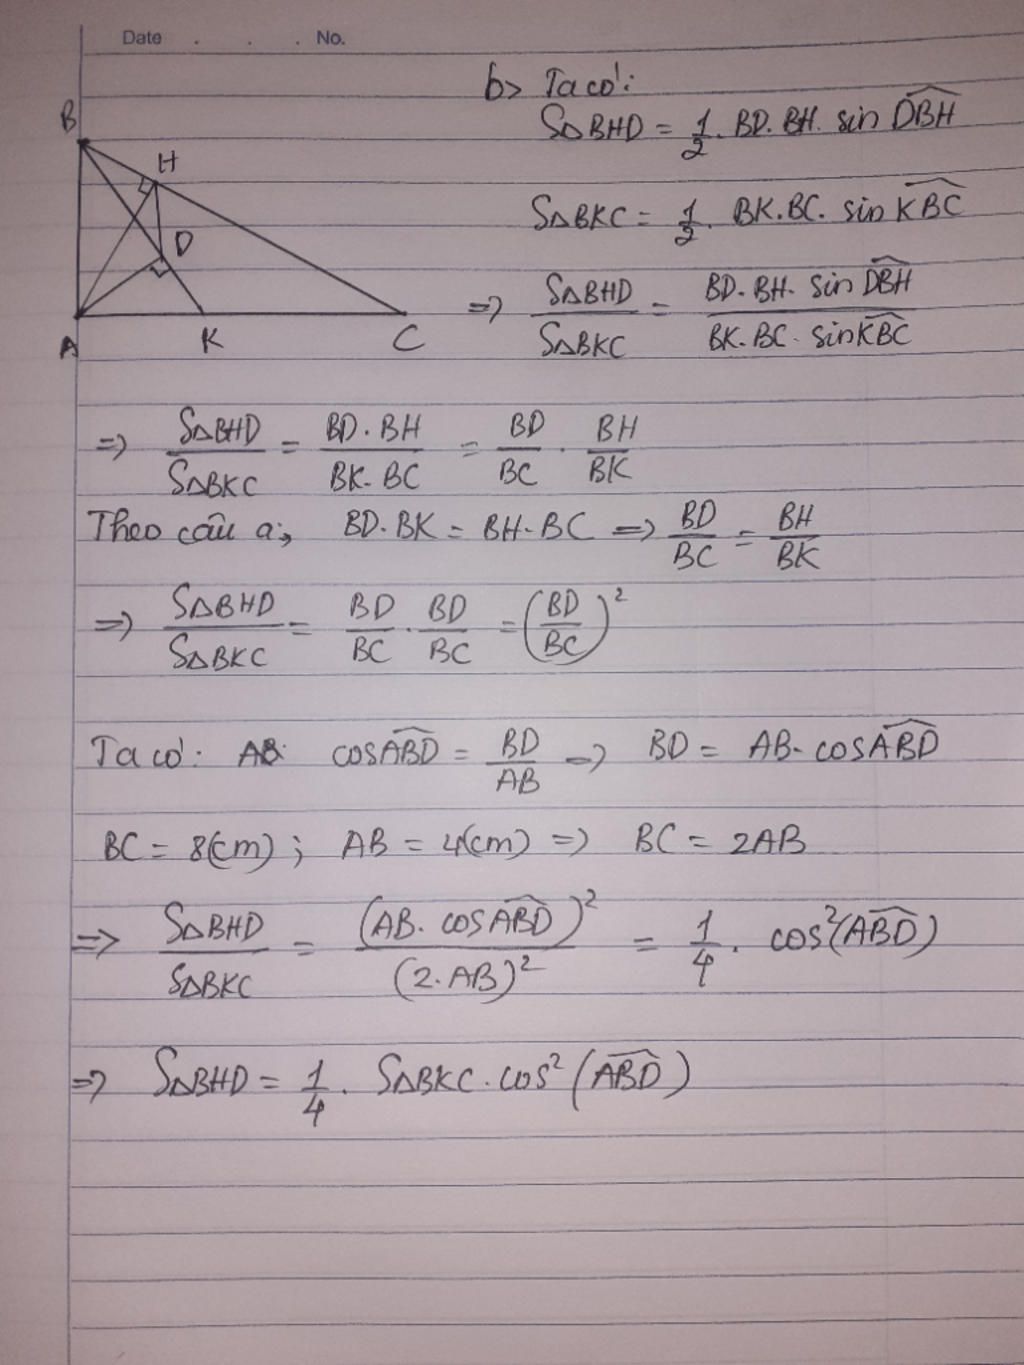 Date . . . No.
b> Ta có:
B
S∆BHD = 1/2 . BD. BH. sin DBH
H
S∆BKC = 1/2 . BK. BC. sin KBC
D
=> S∆BHD/S∆BKC = BD. BH. sin DBH/BK. BC. sin KBC
A K C
=> S∆BHD/S∆BKC = BD. BH/BK. BC = BD/BC . BH/BK
Theo câu a; BD. BK = BH. BC => BD/BC = BH/BK
=> S∆BHD/S∆BKC = BD/BC . BD/BC = (BD/BC)²
Ta có: AB cos ABD = BD/AB => BD = AB. cos ABD
BC = 8(cm) ; AB = 4(cm) => BC = 2AB
=> S∆BHD/S∆BKC = (AB. cos ABD)²/(2. AB)² = 1/4 . cos²(ABD)
=> S∆BHD = 1/4 . S∆BKC. cos²(ABD)